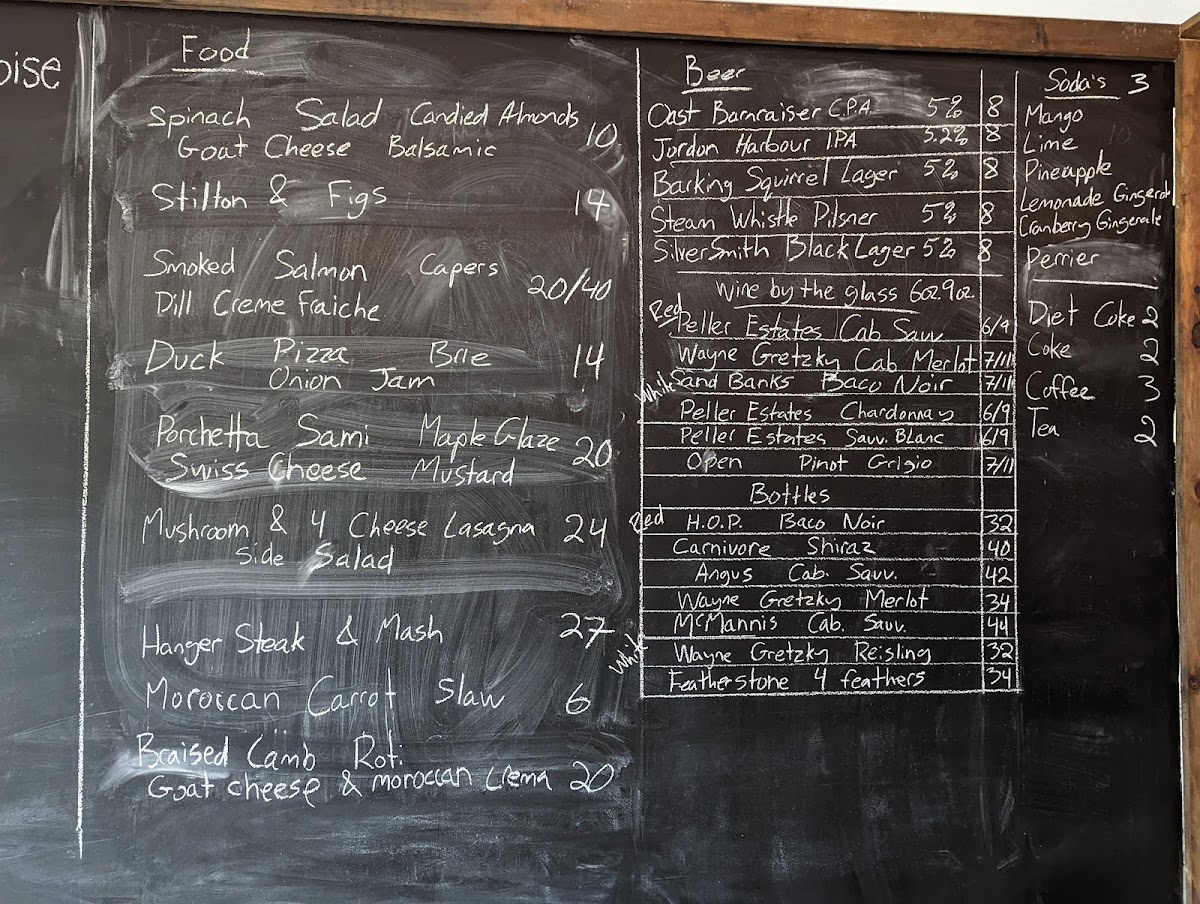 oise
Food
Spinach Salad Candied Almonds
Goat Cheese Balsamic 10
Stilton & Figs 14
Smoked Salmon Capers
Dill Creme Fraiche 20/40
Duck Pizza Brie 14
Onion Jam
Porchetta Sami Maple Glaze
Swiss Cheese Mustard 20
Mushroom & 4 Cheese Lasagna 24
Side Salad
Hanger Steak & Mash 27
Moroccan Carrot Slaw 6
Braised Lamb Roti
Goat cheese & moroccan Crema 20
Beer
Oast Barnraiser C.P.A. 5% 8
Jordon Harbour IPA 5.2% 8
Barking Squirrel Lager 5% 8
Steam Whistle Pilsner 5% 8
SilverSmith Black Lager 5% 8
Wine by the glass 6oz. 9oz.
Red
Peller Estates Cab Sauv 6/9
Wayne Gretzky Cab Merlot 7/11
Sand Banks Baco Noir 7/11
White
Peller Estates Chardonnay 6/9
Peller Estates Sauv. Blanc 6/9
Open Pinot Grigio 7/11
Bottles
Red
H.O.P. Baco Noir 32
Carnivore Shiraz 40
Angus Cab. Sauv. 42
Wayne Gretzky Merlot 34
McMannis Cab. Sauv. 44
White
Wayne Gretzky Reisling 32
Featherstone 4 feathers 34
Soda's 3
Mango
Lime
Pineapple
Lemonade Gingerale
Cranberry Gingerale
Perrier
Diet Coke 2
Coke 2
Coffee 3
Tea 2